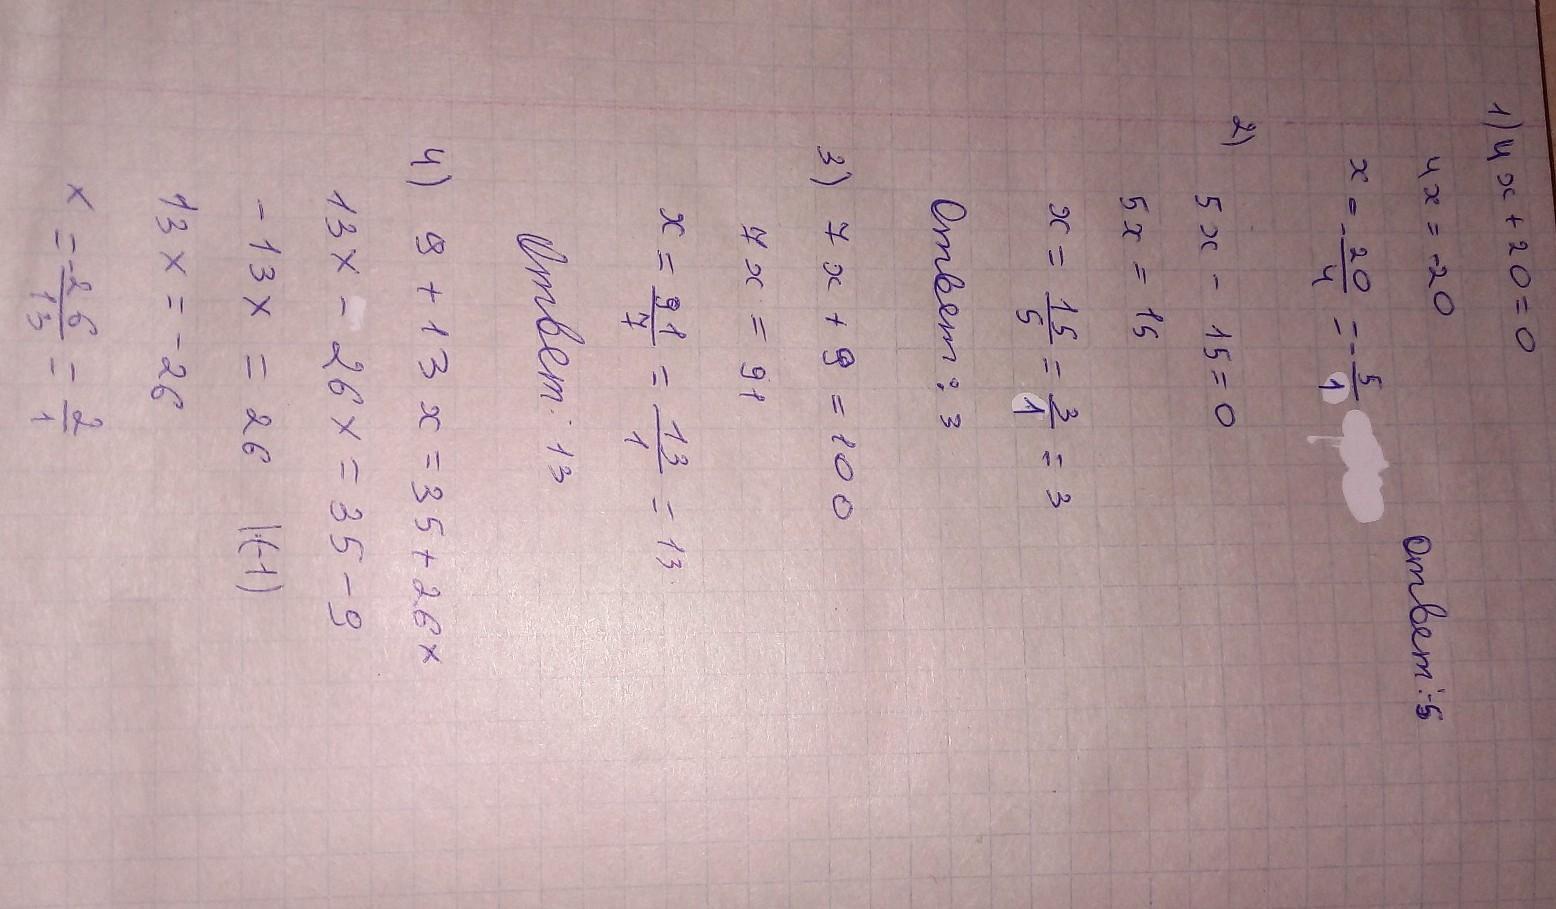 1) 4x + 20 = 0
4x = -20
x = -20/4 = -5/1
Ответ: -5
2) 5x - 15 = 0
5x = 15
x = 15/5 = 3/1 = 3
Ответ: 3
3) 7x + 9 = 100
7x = 91
x = 91/7 = 13/1 = 13
Ответ: 13
4) 9 + 13x = 35 + 26x
13x - 26x = 35 - 9
-13x = 26 |:(-1)
13x = -26
x = -26/13 = 2/1